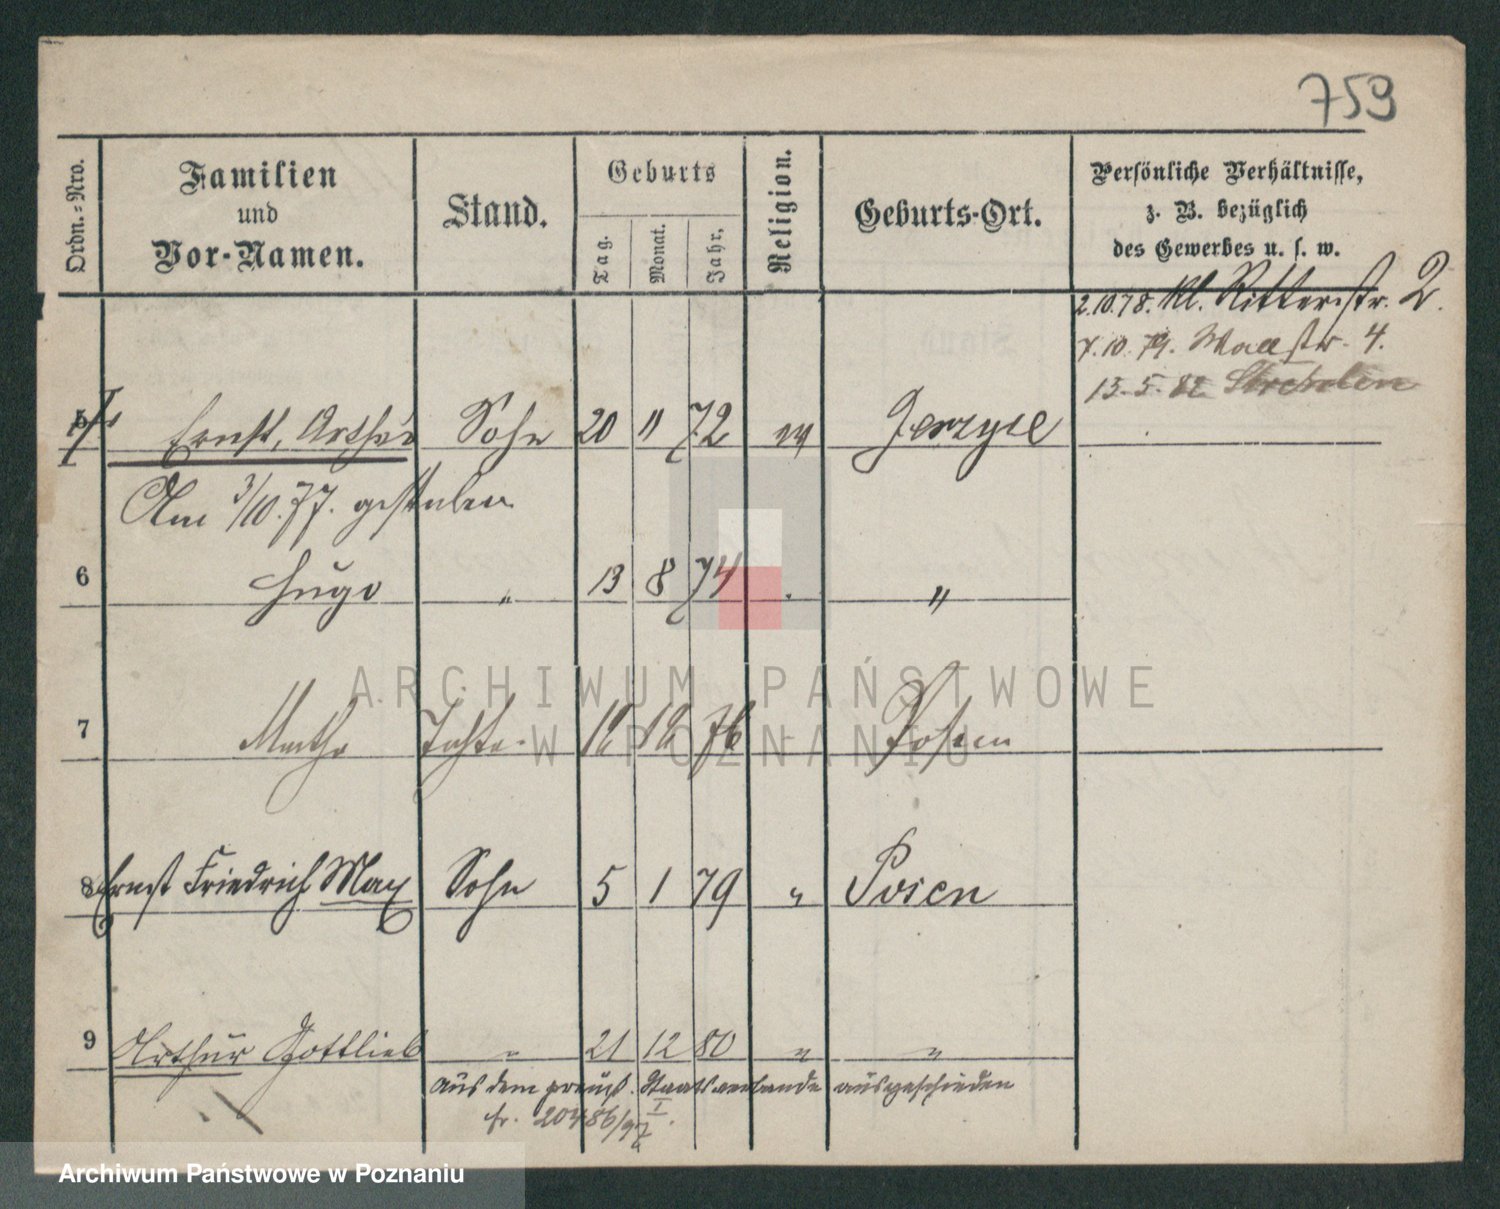 759
Ordn.-Nro.
Familien
und
Vor-Namen.
Stand.
Geburts
Tag.
Monat.
Jahr.
Religion.
Geburts-Ort.
Persönliche Verhältnisse,
z. B. bezüglich
des Gewerbes u. s. w.
2.10.78. Kl. Ritterstr. 2.
7.10.79. Wallstr. 4.
13.5.82
5 Ernst, Arthur Sohn 20 11 72 ev Jerzyce
Am 3/10.77. gestorben
6 Hugo " 13 8 74 "
7 Martha Tochter 12 12 76 Posen
8 Ernst Friedrich Max Sohn 5 1 79 " Posen
9 Arthur Gottlieb " 21 12 80 " "
aus dem preuß. Staatsverbande ausgeschieden
fr. 20486/97 I.
ARCHIWUM PAŃSTWOWE
W POZNANIU
Archiwum Państwowe w Poznaniu